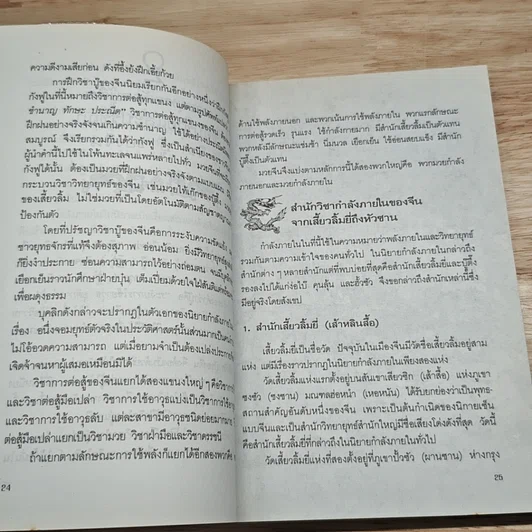 ความดีงามเสียก่อน ดังที่อึ้งยังฝึกเอี้ยก้วย
การฝึกวิชาบู๊ของจีนนิยมเรียกกันอีกอย่างหนึ่งว่าฝึก
กังฟูในที่นี้หมายถึงวิชาการต่อสู้ทุกแขนง แต่ตามรูปศัพท์
ชำนาญ ทักษะ ประณีต" วิชาการต่อสู้ทุกแขนงของจีน
ฝึกฝนอย่างจริงจังจนเกิดความชำนาญ ใช้ได้อย่างประณีต
สมบูรณ์ จึงเรียกรวมกันได้ว่ากังฟู ซึ่งเป็นสำเนียงของ
ผู้นำคำนี้ไปใช้ในโพ้นทะเลจนแพร่หลายไปทั่ว มวยจีน
กังฟูได้นั้น ต้องเป็นมวยที่ฝึกฝนอย่างจริงจังตามแบบ
กระบวนวิชาวิทยายุทธ์ของจีน เช่นมวยไท้เก๊กของบู๊ตึ๊ง
ของเสี้ยวลิ้ม ไม่ใช่มวยที่เป็นโดยอัตโนมัติตามสัญชาตญาณ
ป้องกันตัว
โดยที่ปรัชญาวิชาบู๊ของจีนคือการระงับความรัดทน
ชาวยุทธจักรที่แท้จึงต้องสุภาพ อ่อนน้อม ยิ่งมีวิทยายุทธ์
ก็ยิ่งงำประกาย ซ่อนความสามารถไว้อย่างถ่อมตน
เยือกเย็นราวนักศึกษาฝ่ายบุ๋น เต็มเปี่ยมด้วยใจใฝ่สันติ
เพื่อผดุงธรรม
บุคลิกดังกล่าวจะปรากฏในตัวเอกของนิยายกำลังภายใน
เรื่อง อนึ่งจอมยุทธ์ตัวจริงในประวัติศาสตร์นั้นส่วนมากเป็นคน
ไม่โอ้อวดความสามารถ แต่เมื่อยามจำเป็นต้องเปล่งประกาย
เจิดจ้าจนหาผู้เสมอเหมือนมิได้
วิชาการต่อสู้ของจีนแยกได้สองแขนงใหญ่ ๆ คือวิชา
และวิชาต่อสู้มือเปล่า วิชาการใช้อาวุธแบ่งเป็นวิชาการใช้
การใช้อาวุธลับ แต่ละสาขามีอาวุธชนิดย่อยมากมาย
ต่อสู้มือเปล่าแยกเป็นวิชามวย วิชาฝ่ามือและวิชาดรรชนี
ถ้าแยกตามลักษณะการใช้พลังก็แยกได้อีกสองพวกคือ
24
ด้านใช้พลังภายนอก และพวกเน้นการใช้พลังภายใน พวกแรกลักษณะ
การต่อสู้รวดเร็ว รุนแรง ใช้กำลังกายมาก มีสำนักเสี้ยวลิ้มเป็นตัวแทน
พวกหลังมีลักษณะแช่มช้า นิ่มนวล เยือกเย็น ใช้อ่อนสยบแข็ง มีสำนัก
บู๊ตึ๊งเป็นตัวแทน
มวยจีนจึงแบ่งตามหลักการนี้ได้สองพวกใหญ่คือ พวกมวยกำลัง
ภายนอกและมวยกำลังภายใน
สำนักวิชากำลังภายในของจีน
จากเสี้ยวลิ้มยี่ถึงหัวซาน
กำลังภายในในที่นี้ใช้ในความหมายว่าพลังภายในและวิทยายุทธ์
รวมกันตามความเข้าใจของคนทั่วไป ในนิยายกำลังภายในกล่าวถึง
สำนักต่าง ๆ หลายสำนักแต่ที่พบบ่อยที่สุดคือสำนักเสี้ยวลิ้มยี่และบู๊ตึ๊ง
รองลงไปได้แก่ง่อไบ๊ คุนลุ้น และฮั้วซัว จึงจะขอกล่าวถึงสำนักเหล่านี้ซึ่ง
มีอยู่จริงโดยสังเขป
1. สำนักเสี้ยวลิ้มยี่ (เส้าหลินสื้อ)
เสี้ยวลิ้มยี่เป็นชื่อวัด ปัจจุบันในเมืองจีนมีวัดชื่อเสี้ยวลิ้มยี่อยู่สาม
แห่ง แต่มีเรื่องราวปรากฏในนิยายกำลังภายในเพียงสองแห่ง
วัดเสี้ยวลิ้มยี่แห่งแรกตั้งอยู่บนสันเขาเสียวซิก (เส้าสื้อ) แห่งภูเขา
ซงซัว (ซงซาน) มณฑลฮ่อหนำ (เหอหนัน) ได้รับยกย่องว่าเป็นพุทธ-
สถานสำคัญอันดับหนึ่งของจีน เพราะเป็นต้นกำเนิดของนิกายเซ็น
แบบจีนและเป็นสำนักวิทยายุทธ์สำนักใหญ่มีชื่อเสียงโด่งดังที่สุด วัดนี้
คือสำนักเสี้ยวลิ้มยี่ที่กล่าวถึงในนิยายกำลังภายในทั่วไป
วัดเสี้ยวลิ้มยี่แห่งที่สองตั้งอยู่ที่ภูเขาปั้วซัว (ผานซาน) ห่างกรุง
25